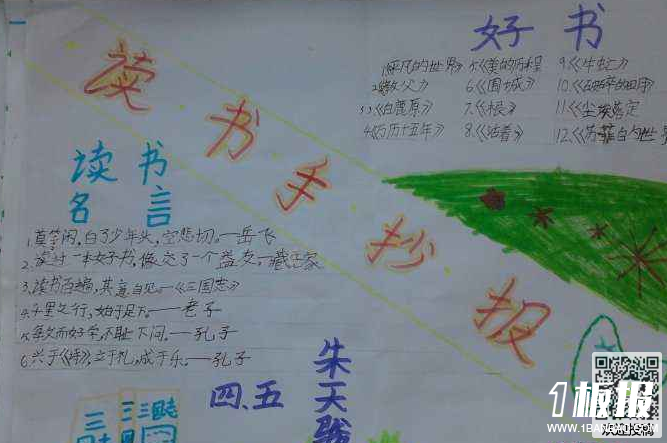 读书手抄报
好书
1.《平凡的世界》 5.《美的历程》 9.《牛虻》
2.《教父》 6.《围城》 10.
3.《白鹿原》 7.《根》 11.《尘埃落定》
4.《万历十五年》 8.《活着》 12.
读书
名言
1.莫等闲,白了少年头,空悲切。—岳飞
2.读过一本好书,像交了一个益友。—臧克家
3.读书百遍,其意自见。—《三国志》
4.千里之行,始于足下。——老子
5.敏而好学,不耻下问。——孔子
6.兴于《诗》,立于礼,成于乐。——孔子
四、五
朱天
三国
三国志
1板报
WWW.1BANBAO.COM
欢迎投稿